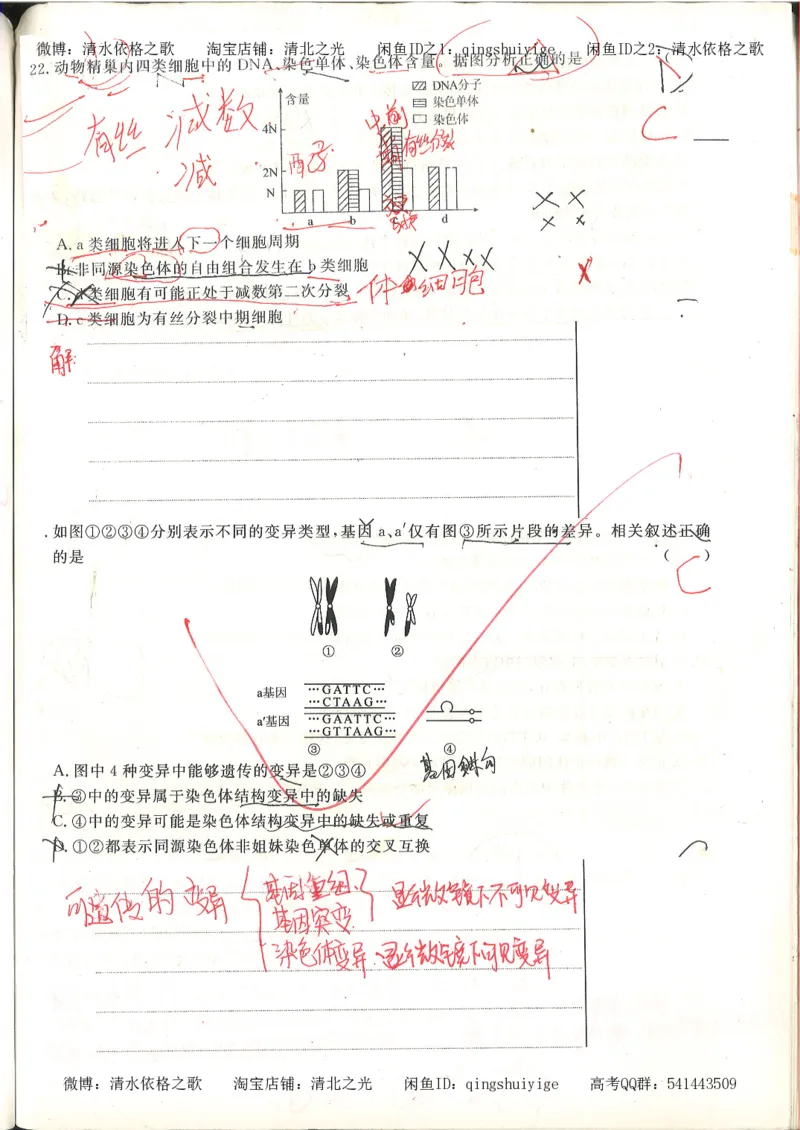 微博：清水依格之歌 淘宝店铺：清北之光 闲鱼ID之1：qingshuiyige 闲鱼ID之2：清水依格之歌
22.动物精巢内四类细胞中的DNA、染色单体、染色体含量。据图分析正确的是
D
C
有丝 减数
减
含量
4N
2N
N
DNA分子
染色单体
染色体
配子
中前
有丝分裂
a b d
A. a类细胞将进入下一个细胞周期
B.非同源染色体的自由组合发生在b类细胞
C. 类细胞有可能正处于减数第二次分裂
体细胞
D. c类细胞为有丝分裂中期细胞
解:
.如图①②③④分别表示不同的变异类型,基因a、a′仅有图③所示片段的差异。相关叙述正确
的是 ( )
C
① ②
a基因 …GATTC…
…CTAAG…
a′基因 …GAATTC…
…GTTAAG…
③ ④
A.图中4种变异中能够遗传的变异是②③④
B.③中的变异属于染色体结构变异中的缺失
C.④中的变异可能是染色体结构变异中的缺失或重复
D.①②都表示同源染色体非姐妹染色单体的交叉互换
可遗传的变异
基因重组
基因突变
显微镜下不可见变异
染色体变异:显微镜下可见变异
微博：清水依格之歌 淘宝店铺：清北之光 闲鱼ID：qingshuiyige 高考QQ群：541443509